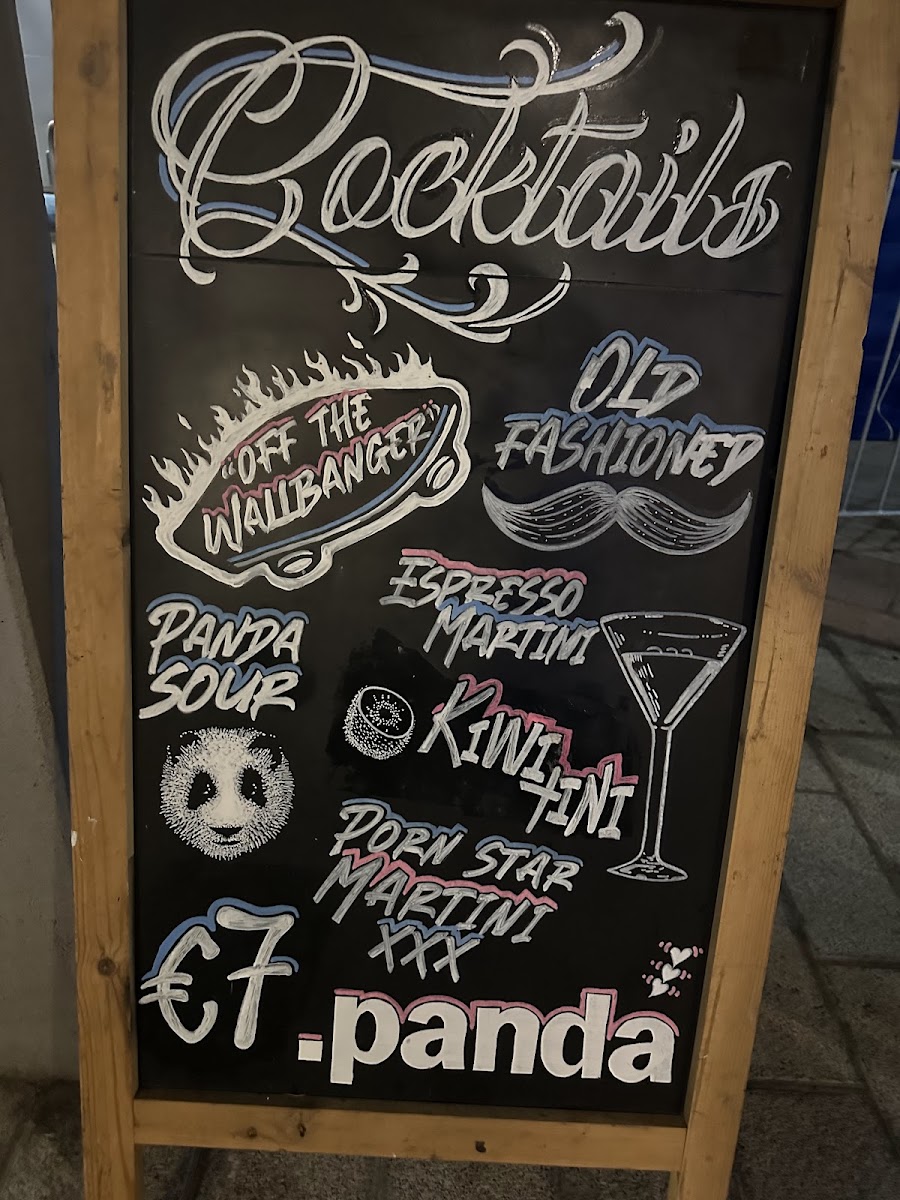 Cocktails
"OFF THE
WALLBANGER"
OLD
FASHIONED
ESPRESSO
MARTINI
PANDA
SOUR
KIWI
TINI
PORN STAR
MARTINI
XXX
€7
.panda